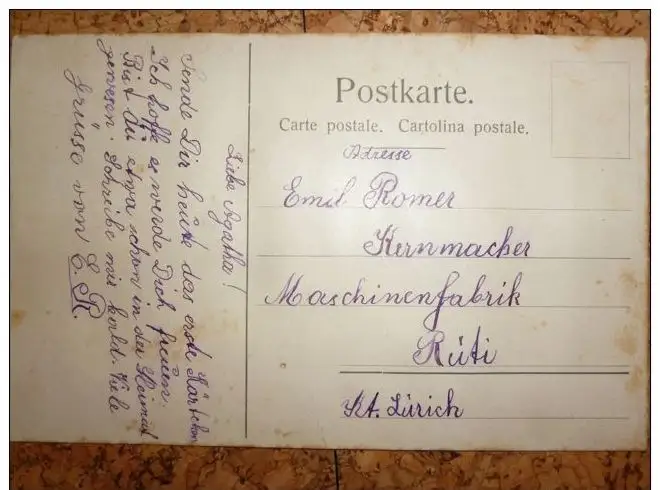 Liebe Agatha!
Sende Dir heute das erste Kärtchen
Ich hoffe es werde Dich freuen.
Bist du etwa schon in der Heimat
gewesen. Schreibe mir bald. Viele
Grüsse von E. R.
Postkarte.
Carte postale. Cartolina postale.
Adresse
Emil Romer
Kernmacher
Maschinenfabrik
Rüti
Kt. Zürich